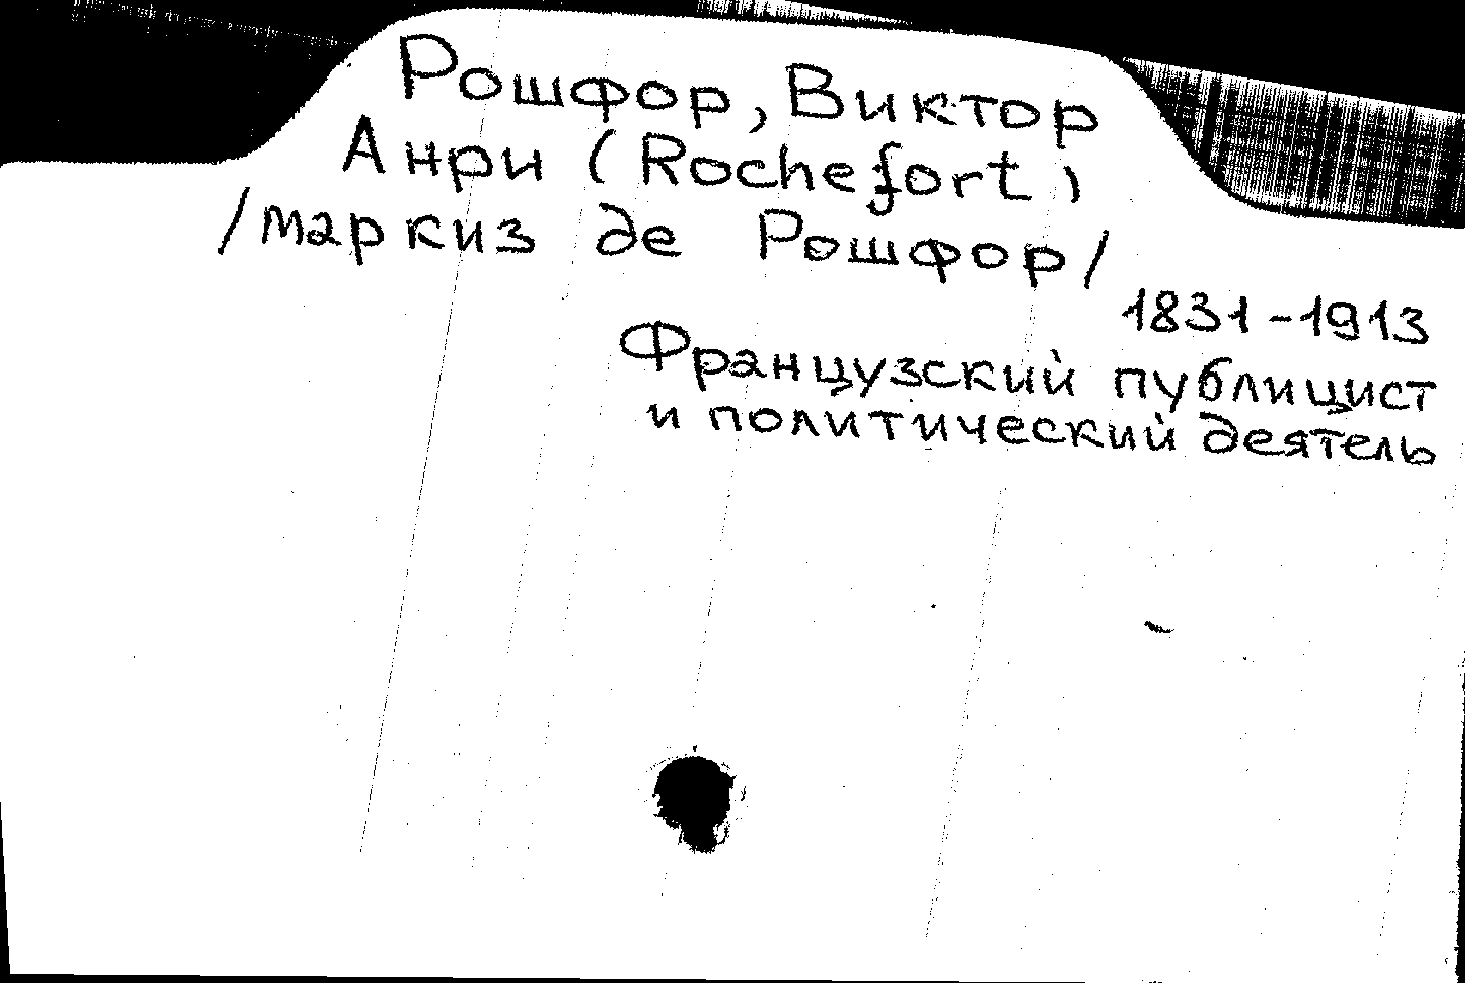 Рошфор, Виктор
Анри (Rochefort)
/маркиз де Рошфор/
1831-1913
Французский публицист
и политический деятель